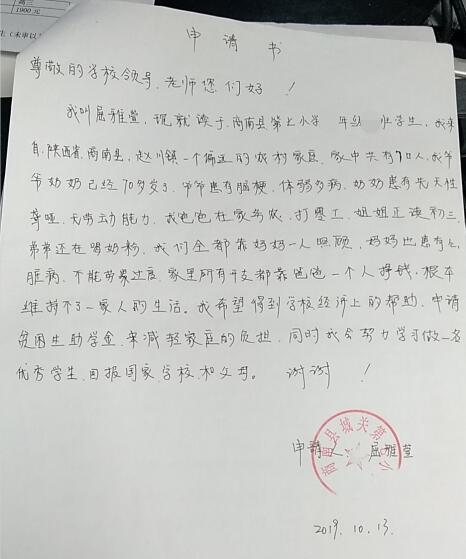 高三
1900元
申请书
尊敬的学校领导、老师您们好！
我叫屈雅萱，现就读于商南县第七小学 年级 班学生，我来
自陕西省商南县，赵川镇一个偏远的农村家庭，家中共有7口人，我爷
爷奶奶已经70多岁了，爷爷患有脑梗，体弱多病，奶奶患有先天性
聋哑，无劳动能力，我爸爸在家务农，打零工，姐姐正读初三
弟弟还在喝奶粉，我们全都靠妈妈一人照顾，妈妈也患有心
脏病，不能劳累过度，家里所有开支都靠爸爸一个人挣钱，根本
维持不了一家人的生活。我希望得到学校经济上的帮助，申请
贫困生助学金，来减轻家庭的负担，同时我会努力学习做一名
优秀学生，回报国家、学校和父母。 谢谢！
申请人：屈雅萱
商南县城关第
2019.10.13.